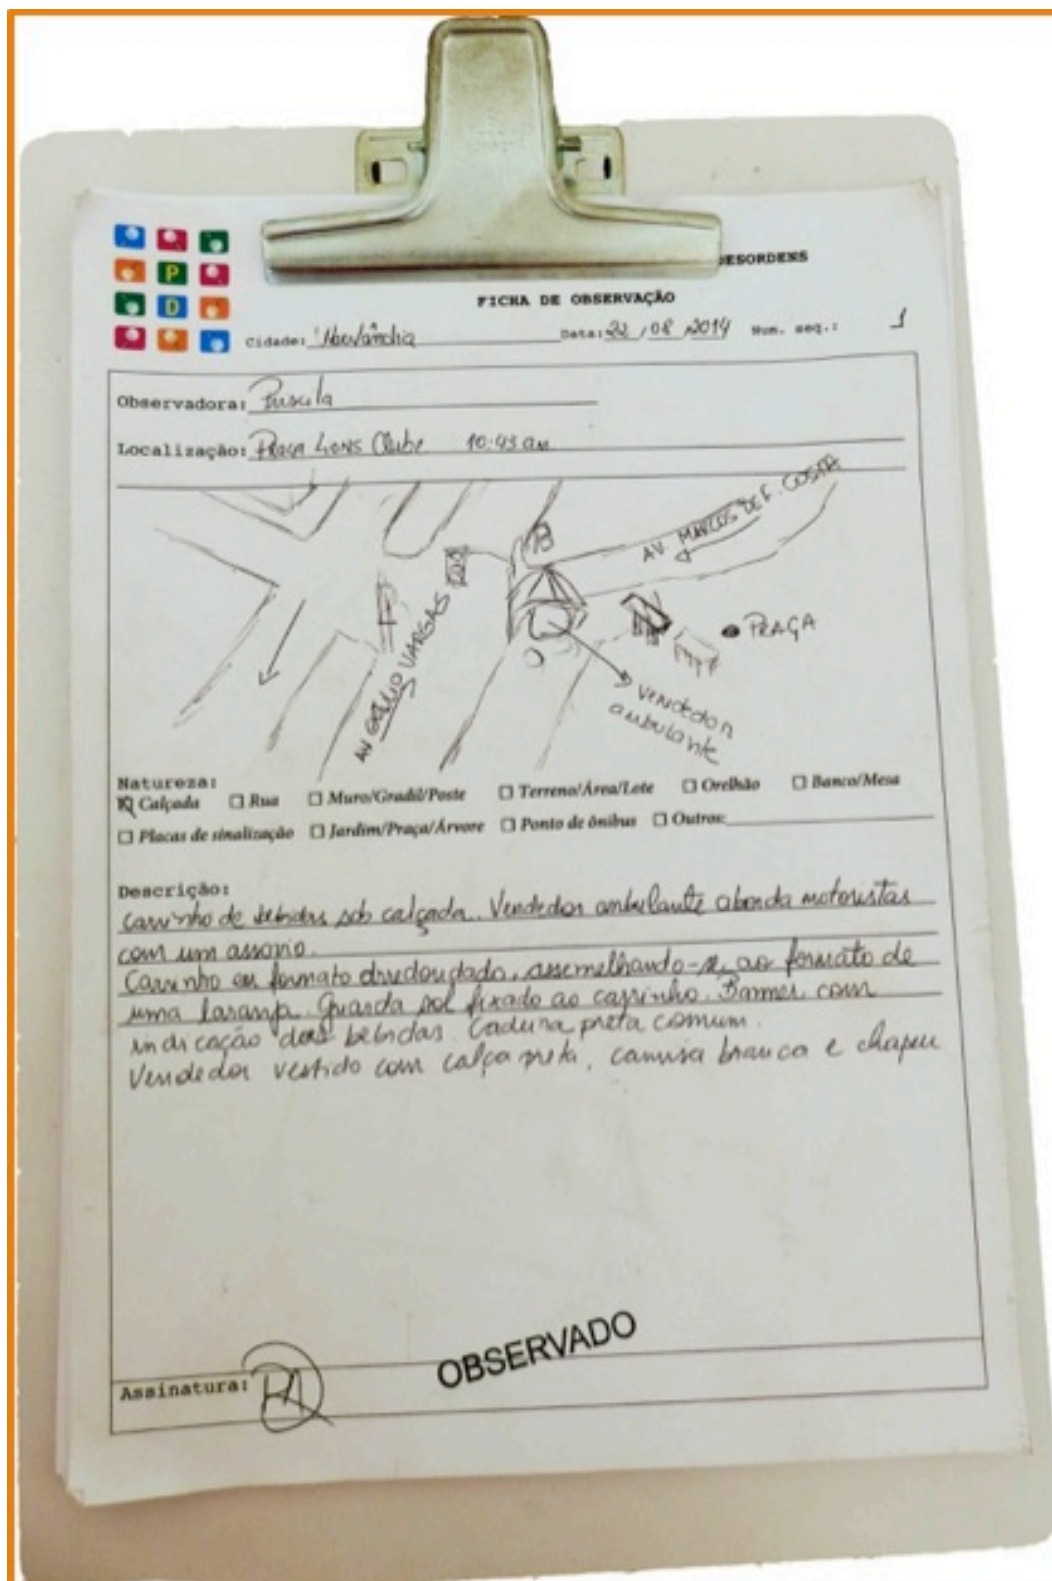 DESORDENS
FICHA DE OBSERVAÇÃO
P
D
Cidade: Uberlândia Data: 22/08/2014 Num. seq.: 1
Observadora: Priscila
Localização: Praça Lions Clube 10:43 am
AV. MARCOS DE F. COSTA
AV GETÚLIO VARGAS
PRAÇA
vendedor
ambulante
Natureza:
Calçada Rua Muro/Gradil/Poste Terreno/Área/Lote Orelhão Banco/Mesa
Placas de sinalização Jardim/Praça/Árvore Ponto de ônibus Outros:
Descrição:
carrinho de bebidas sob calçada. Vendedor ambulante aborda motoristas
com um assovio.
Carrinho em formato arredondado, assemelhando-se ao formato de
uma laranja. Guarda sol fixado ao carrinho. Banner com
indicação das bebidas. Cadeira preta comum.
Vendedor vestido com calça preta, camisa branca e chapéu
OBSERVADO
Assinatura: PA